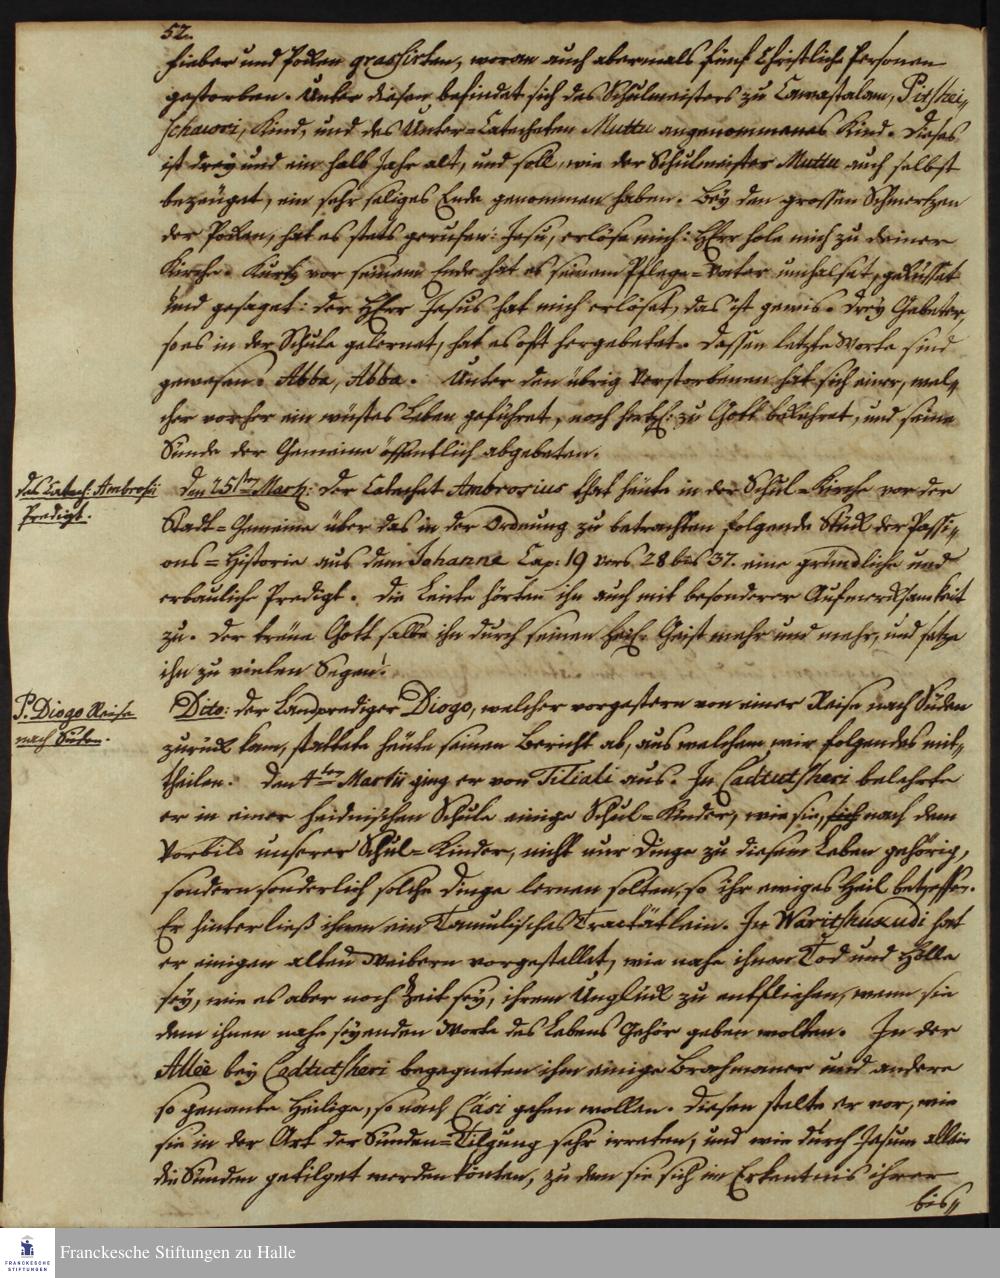 52.
Fieber und Pocken grassirten, woran auch abermals fünf Christliche Personen
gestorben. Unter diesen befindet sich des Schulmeisters zu Cawastalam, Pitschei„
Kind, und des Unter-Catecheten Muttu angenommenes Kind. Dieses
ist drey und ein halb Jahr alt, und soll, wie der Schulmeister Muttu auch selbst
bezeuget, ein sehr seliges Ende genommen haben. Bey den grossen Schmertzen
der Pocken, hat es stets gerufen: Jesu, erlöse mich: HErr hole mich zu deiner
Kirche. Kurtz vor seinem Ende hat es seinem Pflege-Vater umhalset, geküsset
und gesaget: der HErr Jesus hat mich erlöset, das ist gewis. Drey Gebeter,
so es in der Schule gelernet, hat es oft hergebetet. Dessen letzte Worte sind
gewesen: Abba, Abba. Unter den übrig Verstorbenen hat sich einer, wel„
cher vorher ein wüstes Leben geführet, noch hertzl: zu Gott bekehret, und seine
Sünde der Gemeine öffentlich abgebeten.
des Catech: Ambrosii
Predigt.
den 25sten Martz: der Catechet Ambrosius that heute in der Schul-Kirche vor der
Stadt-Gemeine über das in der Ordnung zu betrachten folgende Stück der Passi„
ons-Historie aus dem Johanne Cap: 19 vers 28 bis 37. eine gründliche und
erbauliche Predigt. die Leute hörten ihn auch mit besonderer Aufmercksamkeit
zu. der treue Gott salbe ihn durch seinen heil. Geist mehr und mehr, und setze
ihn zu vielen Segen.
P. Diogo Reise
nach Süden.
Dito: der Landprediger Diogo, welcher vorgestern von einer Reise nach Süden
zurück kam, stattete heute seinen Bericht ab, aus welchem wir folgendes mit„
theilen. den 4ten Martii ging er von Tiliali aus. In Cadtutscheri belehrte
er in einer heidnischen Schule einige Schul-Kinder, wie sie, sich nach dem
Vorbild unserer Schul-Kinder, nicht nur Dinge zu diesem Leben gehörig,
sondern sonderlich solche Dinge lernen solten, so ihr ewiges Heil betreffen.
Er hinterließ ihnen ein Tamulisches Tractätlein. In Waritschukudi hat
er einigen alten Weibern vorgestellet, wie nahe ihnen Tod und Hölle
sey, wie es aber noch Zeit sey, ihrem Unglück zu entfliehen, wenn sie
dem ihnen nahe seyenden Worte des Lebens Gehör geben wolten. In der
Allee bey Cadtutscheri begegneten ihm einige Brahmaner und andere
so genante Heilige, so nach Casi gehen wollen. diesen stelte er vor, wie
sie in der Art der Sünden-Tilgung sehr irreten, und wie durch Jesum allein
die Sünden getilget werden könten, zu dem sie sich im Erkentnis ihrer
bis„
FRANCKESCHE
STIFTUNGEN
Franckesche Stiftungen zu Halle